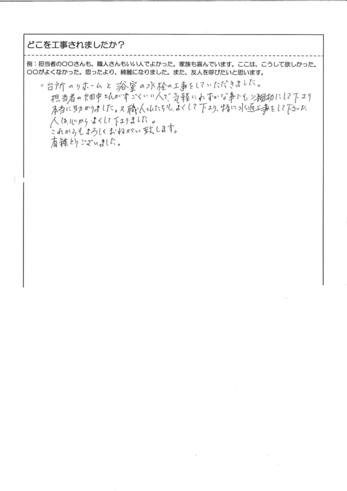 どこを工事されましたか？
例：担当者の〇〇さんも、職人さんもいい人でよかった。家族も喜んでいます。ここは、こうして欲しかった。
〇〇がよくなかった。思ったより、綺麗になりました。また、友人を呼びたいと思います。
台所のリホームと浴室の水栓の工事をしていただきました。
担当者の田中さんがすごくいい人で気軽にわずかな事でも 親切にして下さり
本当に助かりました。又職人さんたちも よくして下さり、特に水道工事をして下さった
人は心からよくして下さりました。
これからもよろしくおねがい致します。
有難とうございました。